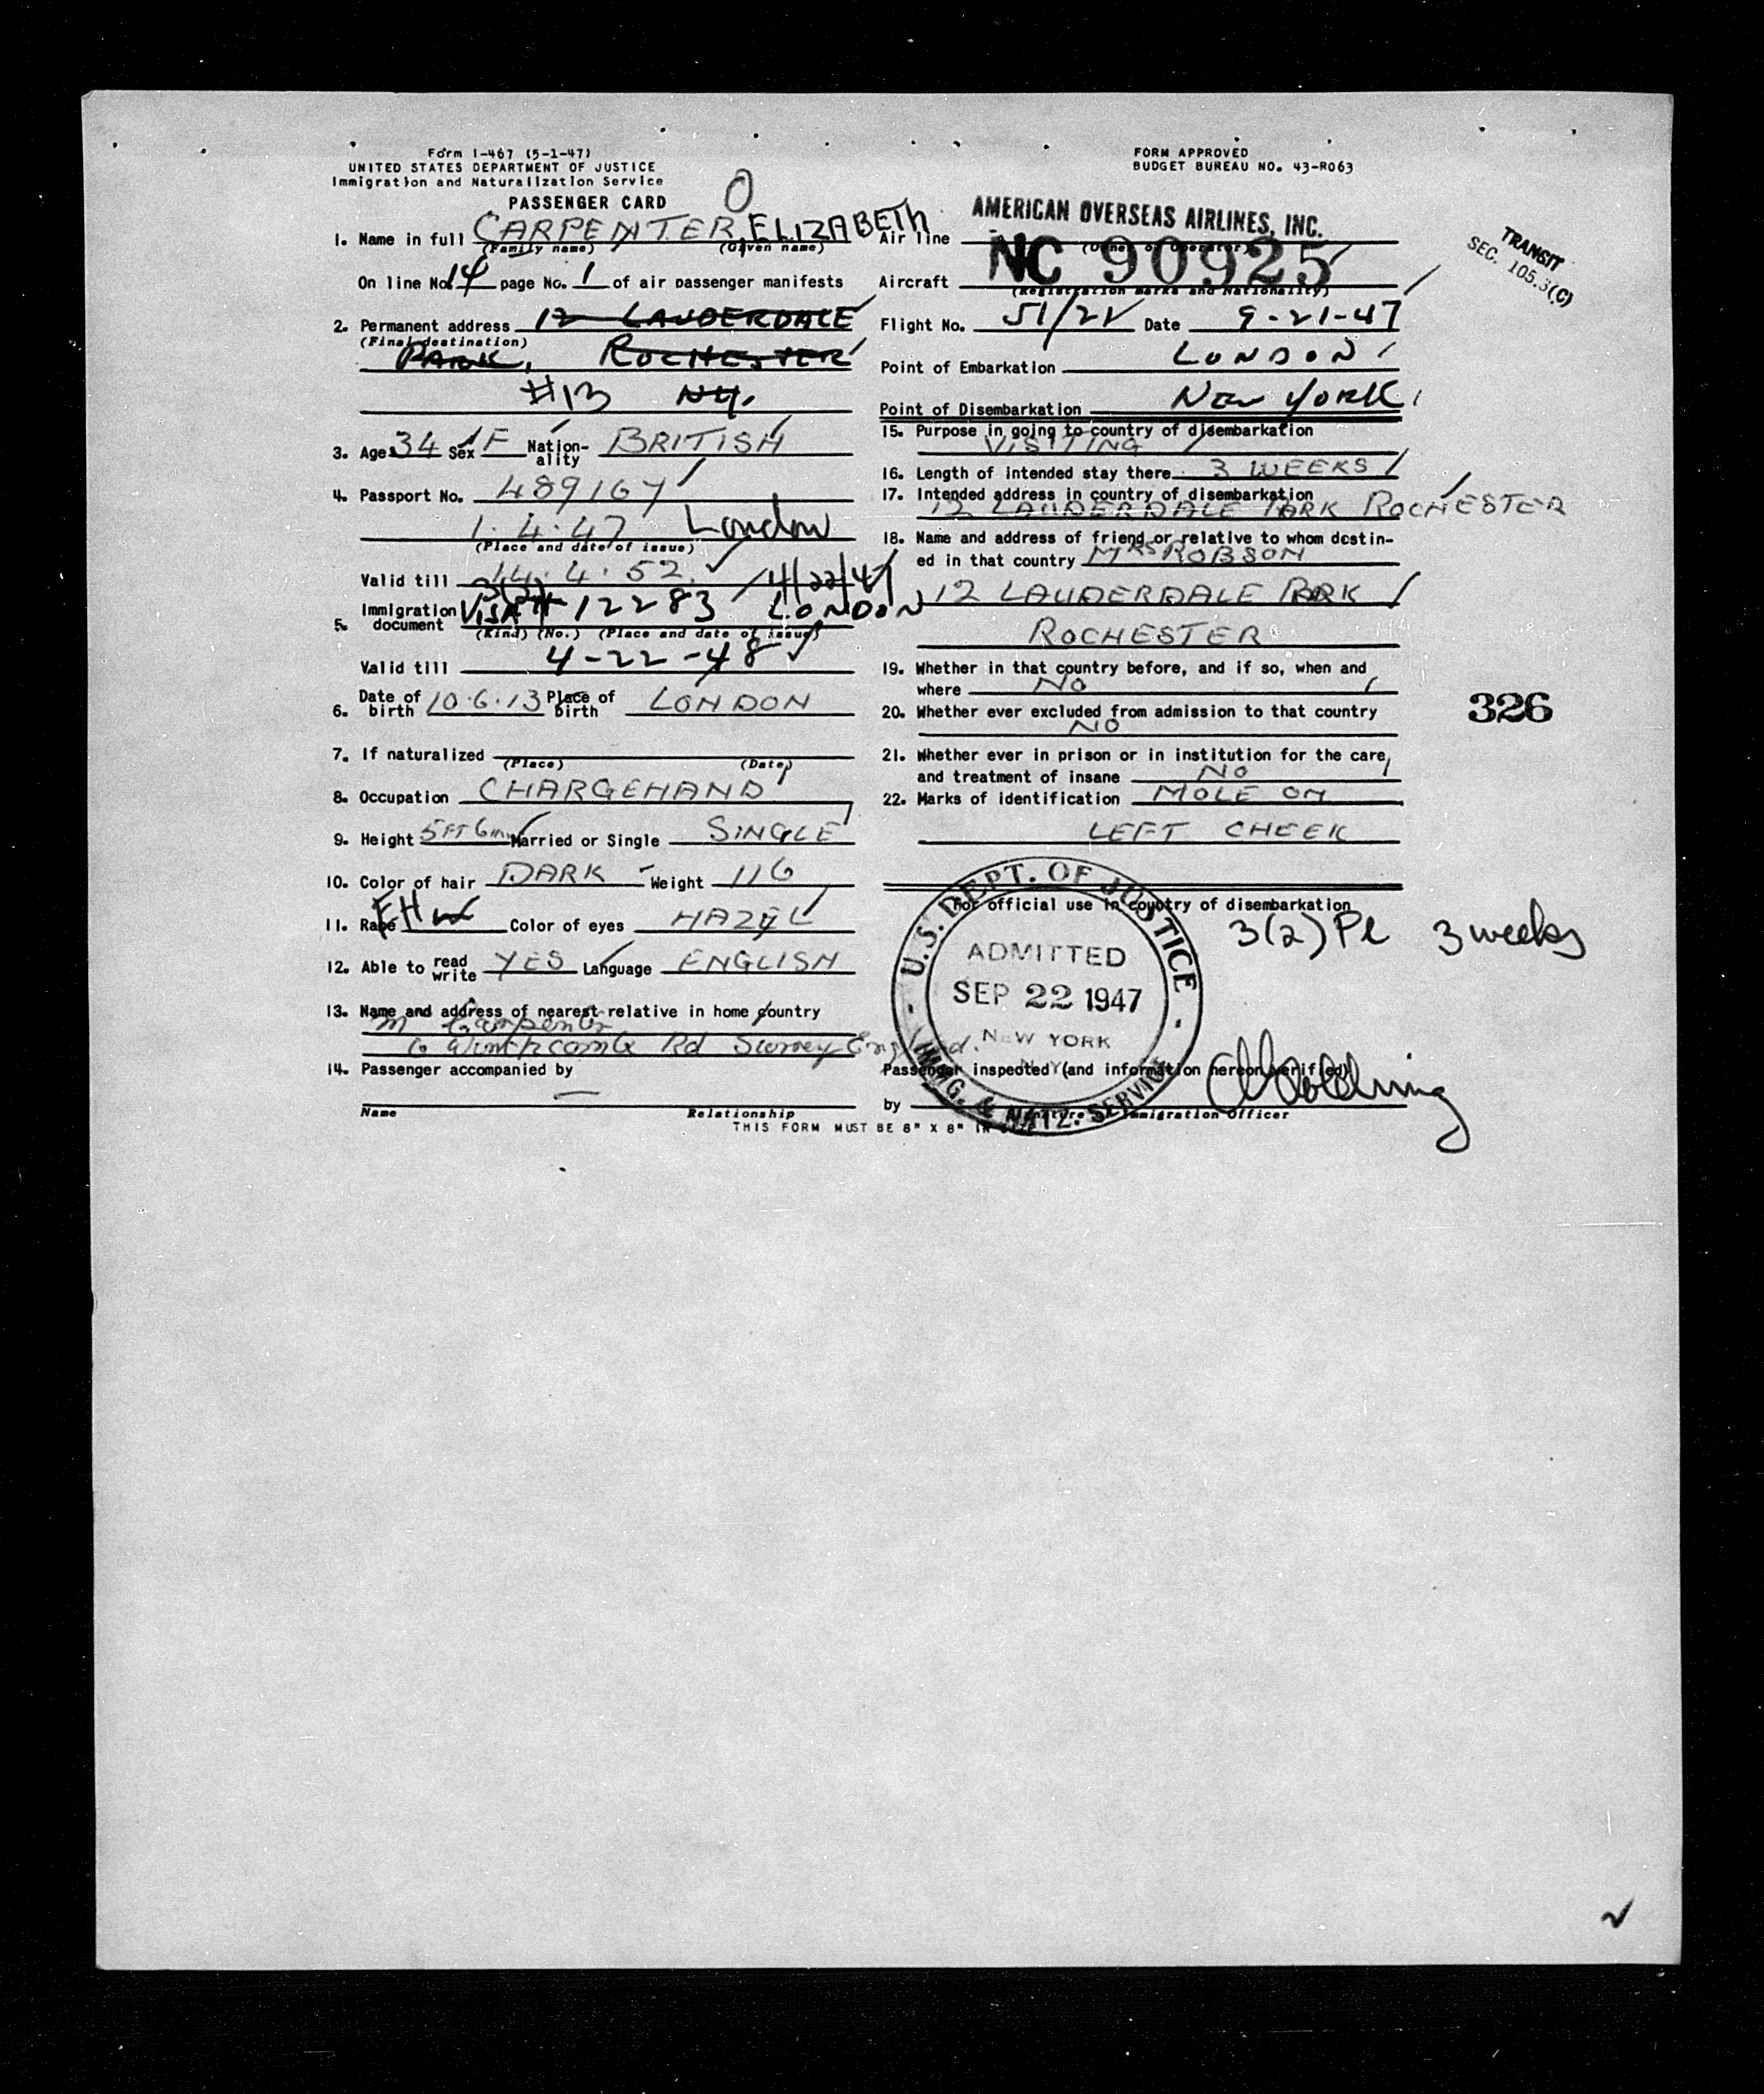 Form I-467 (5-1-47)
UNITED STATES DEPARTMENT OF JUSTICE
Immigration and Naturalization Service
PASSENGER CARD
O
FORM APPROVED
BUDGET BUREAU NO. 43-R063
1. Name in full CARPENTER, ELIZABETH
(Family name) (Given name)
On line No. 14 page No. 1 of air passenger manifests
2. Permanent address 12 LAUDERDALE
(Final destination)
PARK, ROCHESTER
#13 NY.
3. Age 34 Sex F Nation-ality BRITISH
4. Passport No. 489167
1.4.47 London
(Place and date of issue)
Valid till 14.4.52
3(2) 4/22/47
5. Immigration document VISA # 12283 LONDON
(Kind) (No.) (Place and date of issue)
Valid till 4-22-48
6. Date of birth 10.6.13 Place of birth LONDON
7. If naturalized
(Place) (Date)
8. Occupation CHARGEHAND
9. Height 5FT 6in Married or Single SINGLE
10. Color of hair DARK Weight 116
11. Race EH Color of eyes HAZEL
12. Able to read write YES Language ENGLISH
13. Name and address of nearest relative in home country
M Carpenter
6 Winchcombe Rd Surrey England.
14. Passenger accompanied by
—
Name Relationship
THIS FORM MUST BE 8" X 8" IN SIZE
AMERICAN OVERSEAS AIRLINES, INC.
Air line
(Owner or Operator)
Aircraft NC 90925
(Registration marks and Nationality)
Flight No. 51/21 Date 9-21-47
Point of Embarkation LONDON
Point of Disembarkation NEW YORK
15. Purpose in going to country of disembarkation
VISITING
16. Length of intended stay there 3 WEEKS
17. Intended address in country of disembarkation
12 LAUDERDALE PARK ROCHESTER
18. Name and address of friend or relative to whom destin-
ed in that country MRS ROBSON
12 LAUDERDALE PARK
ROCHESTER
19. Whether in that country before, and if so, when and
where NO
20. Whether ever excluded from admission to that country
NO
21. Whether ever in prison or in institution for the care
and treatment of insane NO
22. Marks of identification MOLE ON
LEFT CHEEK
For official use in country of disembarkation
3(2) Pl 3 weeks
U.S. DEPT. OF JUSTICE
ADMITTED
SEP 22 1947
NEW YORK
N.Y.
IMMIG. & NATZ. SERVICE
Passenger inspected (and information hereon verified)
by
Signature Immigration Officer
TRANSIT
SEC. 105.3(C)
326